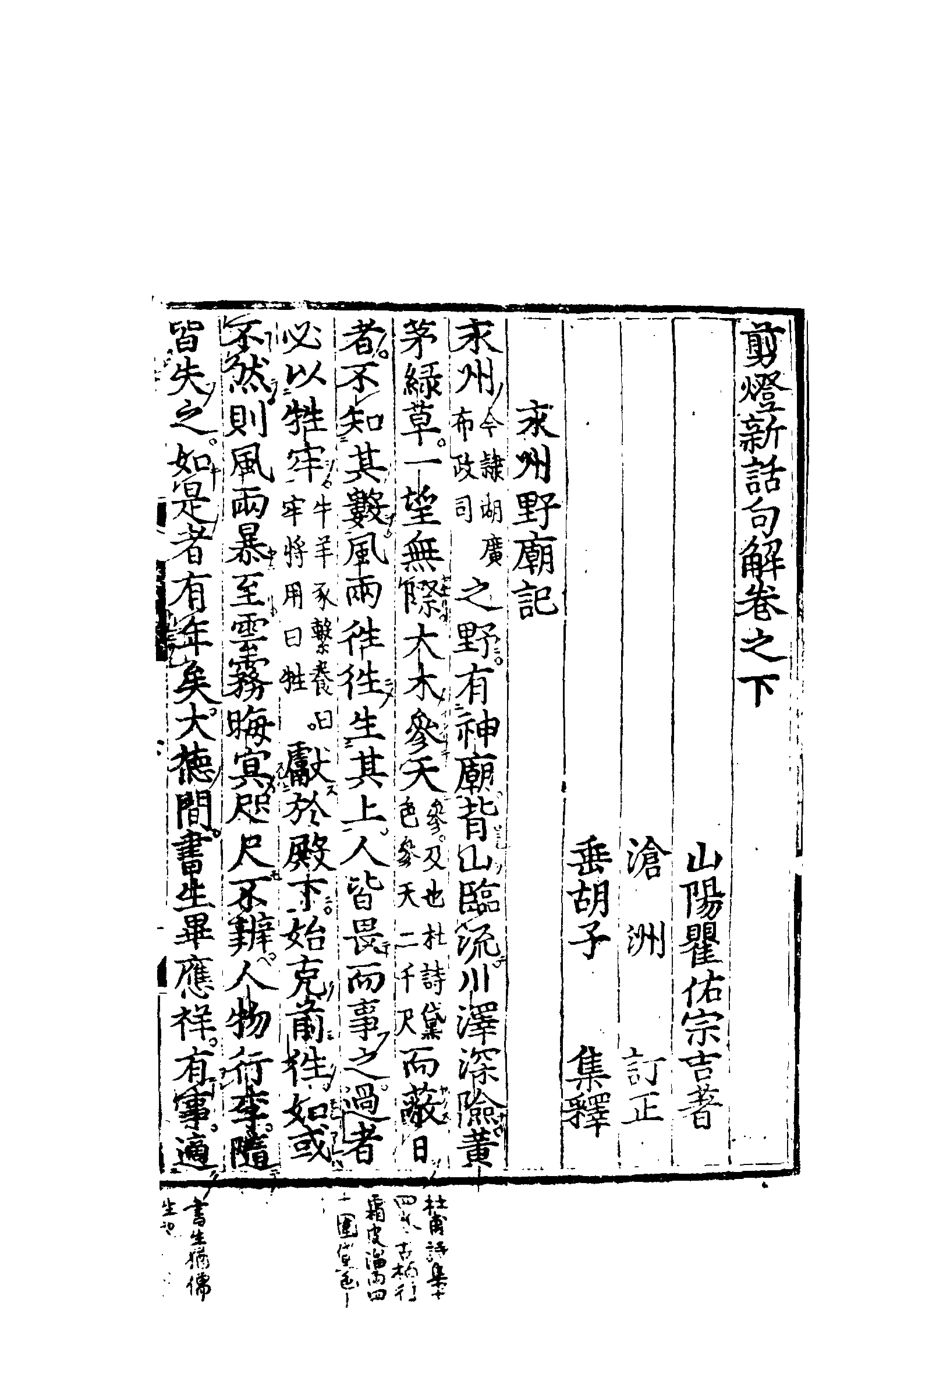 剪燈新話句解卷之下
山陽瞿佑宗吉著
滄洲訂正
垂胡子集釋
永州野廟記
永州今隷湖廣布政司之野有神廟背山臨流川澤深險黃
茅綠草一望無際大木參天參及也杜詩黛色參天二千尺而蔽日
者不知其數風雨徃徃生其上人皆畏而事之過者
必以牲牢牛羊豕繫養曰牢將用曰牲獻於殿下始克前徃如或
不然則風雨暴至雲霧晦冥咫尺不辨人物行李隨
皆失之如是者有年矣大德間書生畢應祥有事適
杜甫詩集十
四卷古柏行
霜皮溜雨四
十圍黛色
書生猶儒
生也